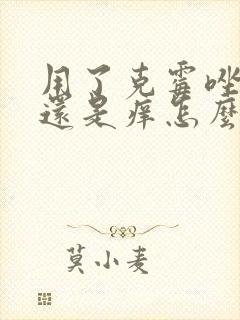 用了克霉唑
還是痒怎麼
莫小麦